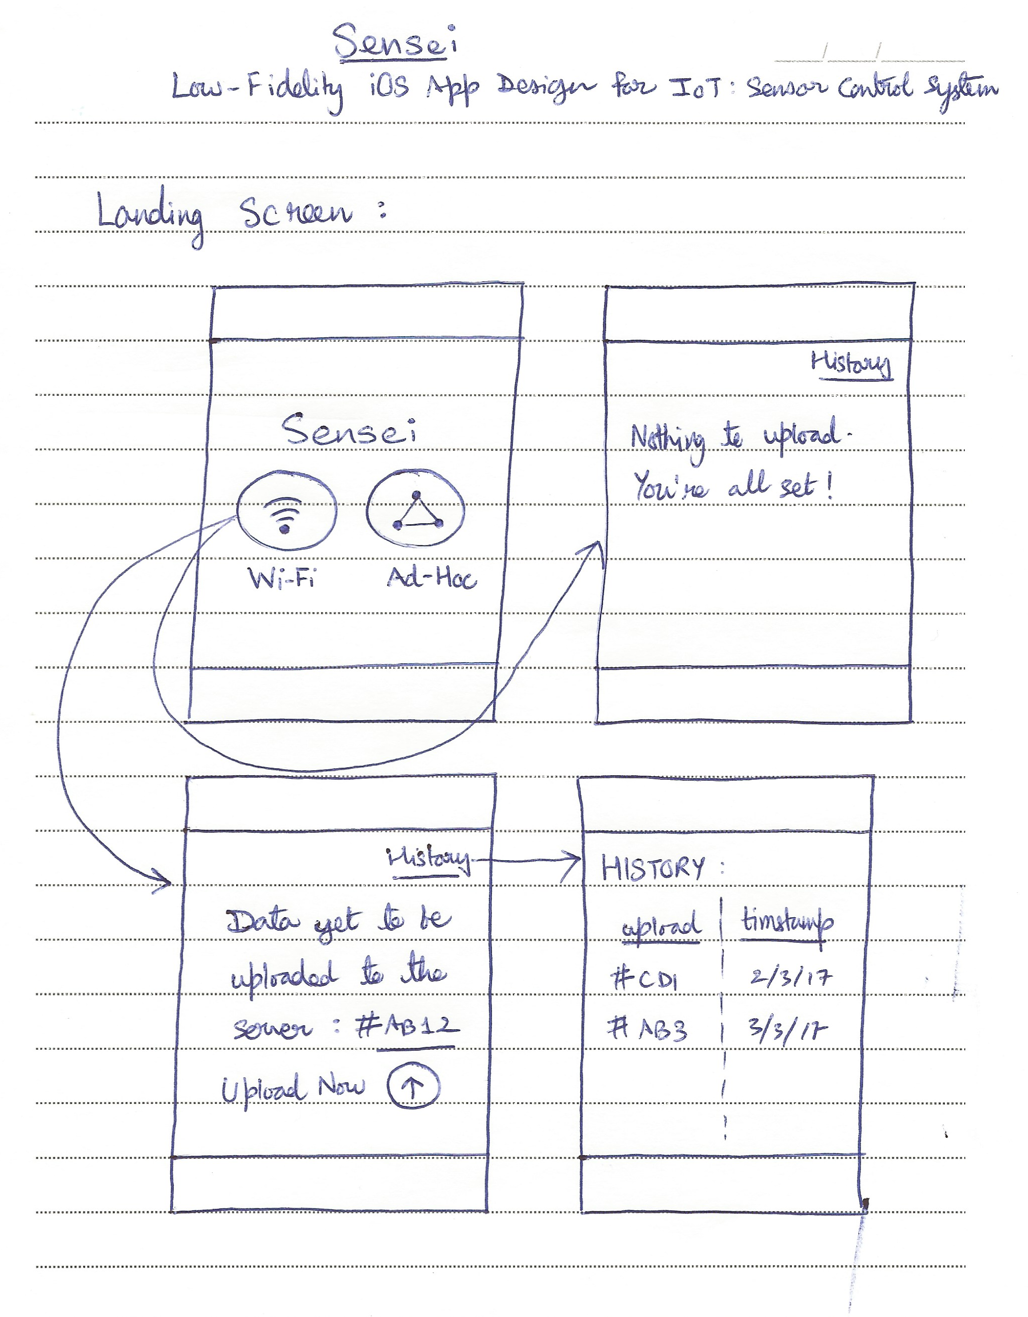 Sensei
Low-Fidelity iOS App Design for IoT: Sensor Control System
Landing Screen :
Sensei
Wi-Fi
Ad-Hoc
History
Nothing to upload.
You're all set!
History
Data yet to be
uploaded to the
server : #AB12
Upload Now
HISTORY :
upload | timstamp
#CD1 2/3/17
#AB3 3/3/17